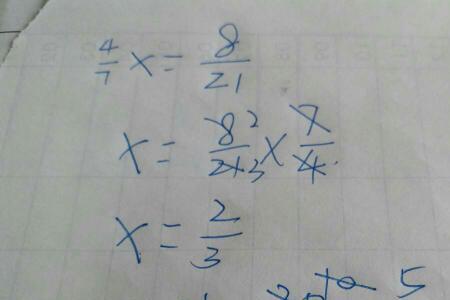 4/7 x = 8/21
x = 8/21 2/3 × 7/4
x = 2/3
5